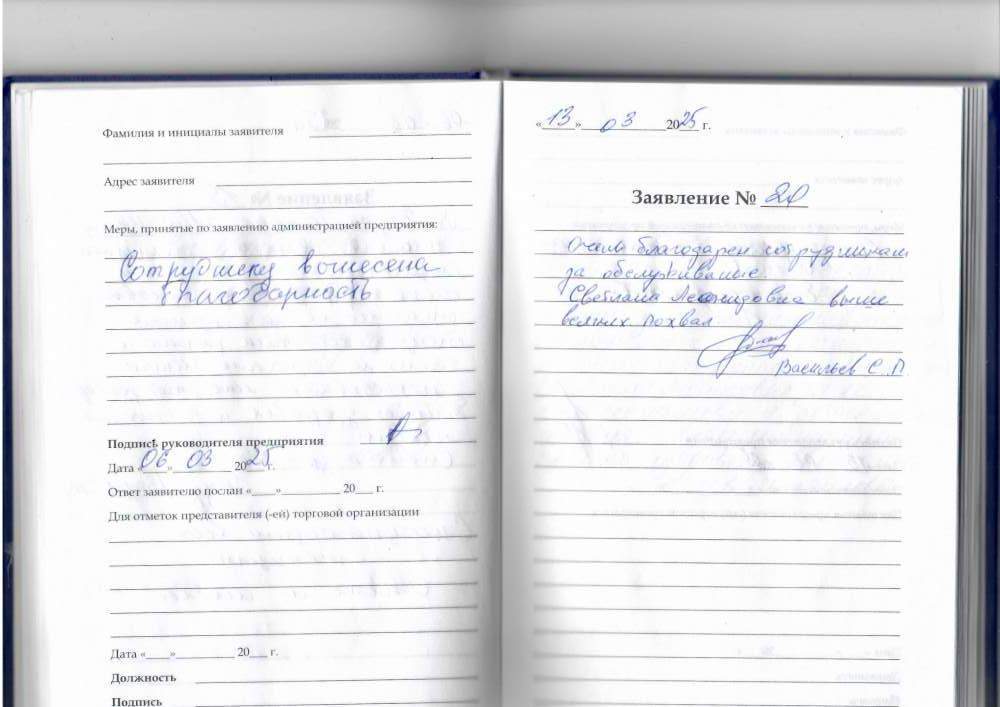 Фамилия и инициалы заявителя
Адрес заявителя
Меры, принятые по заявлению администрацией предприятия:
Сотруднику вынесена
благодарность
Подпись руководителя предприятия
Дата «06» 03 2025 г.
Ответ заявителю послан «___»_________ 20___ г.
Для отметок представителя (-ей) торговой организации
Дата «___»_________ 20___ г.
Должность
Подпись
«13» 03 2025 г.
Заявление № 20
Очень благодарен сотрудникам
за обслуживание
Светлана Леонидовна выше
всяких похвал
Васильев С.П.